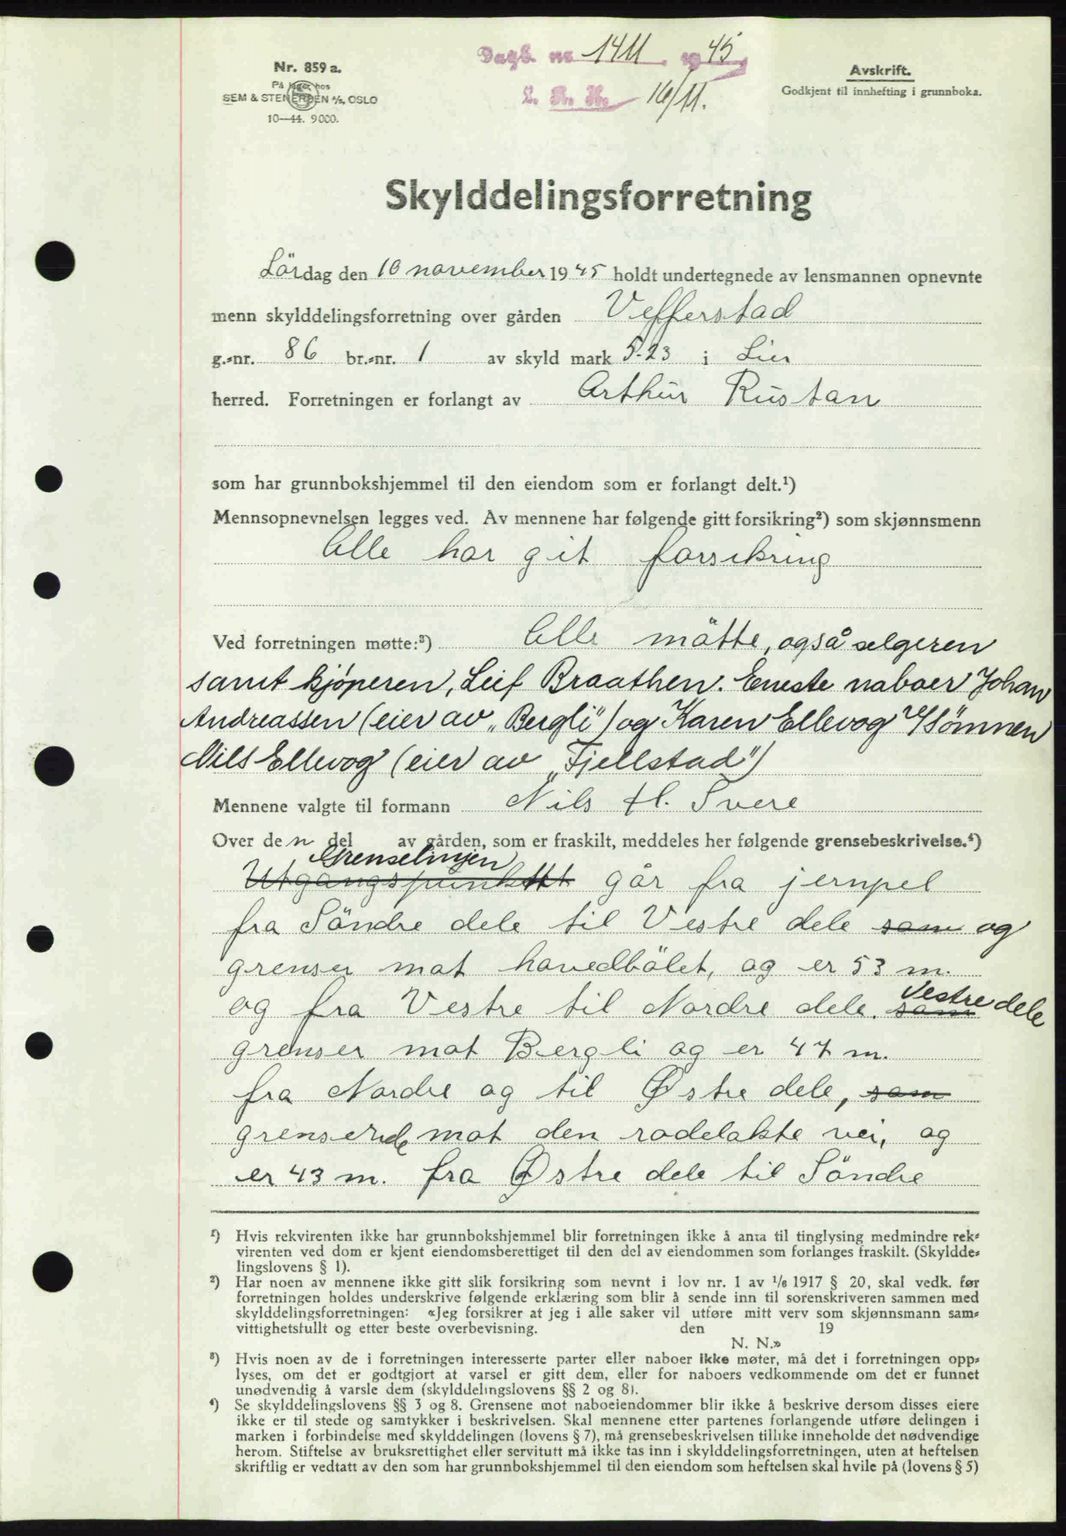 Dagb. nr. 1411. 1945
L. S. K. 16/11.
Nr. 859 a.
På lager hos
SEM & STENERSEN A/S, OSLO
10—44. 9000.
Avskrift.
Godkjent til innhefting i grunnboka.
Skylddelingsforretning
Lördag den 10 november 1945 holdt undertegnede av lensmannen opnevnte
menn skylddelingsforretning over gården Vefferstad
g.-nr. 86 br.-nr. 1 av skyld mark 5-23 i Lier
herred. Forretningen er forlangt av Arthur Rustan
som har grunnbokshjemmel til den eiendom som er forlangt delt.¹)
Mennsopnevnelsen legges ved. Av mennene har følgende gitt forsikring²) som skjønnsmenn
Alle har git forsikring
Ved forretningen møtte:³) Alle mötte, også selgeren
samt kjöperen, Leif Braathen. Eneste naboer Johan
Andreassen (eier av "Bergli") og Karen Ellevog v/Sönnen
Nils Ellevog (eier av "Fjellstad")
Mennene valgte til formann Nils H. Tvere
Over den del av gården, som er fraskilt, meddeles her følgende grensebeskrivelse.⁴)
Grenselinjen
Utgangspunktet går fra jernpel
fra Söndre dele til Vestre dele som og
grenser mot hovedbölet, og er 53 m.
og fra Vestre til Nordre dele. som Vestre dele
grenser mot Bergli og er 47 m.
fra Nordre og til Østre dele, som
grensende mot den rodelakte vei, og
er 43 m. fra Østre dele til Söndre
¹) Hvis rekvirenten ikke har grunnbokshjemmel blir forretningen ikke å anta til tinglysing medmindre rek-
virenten ved dom er kjent eiendomsberettiget til den del av eiendommen som forlanges fraskilt. (Skyldde-
lingslovens § 1).
²) Har noen av mennene ikke gitt slik forsikring som nevnt i lov nr. 1 av 1/6 1917 § 20, skal vedk. før
forretningen holdes underskrive følgende erklæring som blir å sende inn til sorenskriveren sammen med
skylddelingsforretningen: «Jeg forsikrer at jeg i alle saker vil utføre mitt verv som skjønnsmann sam-
vittighetsfullt og etter beste overbevisning. den 19
N. N.»
³) Hvis noen av de i forretningen interesserte parter eller naboer ikke møter, må det i forretningen opp-
lyses, om det er godtgjort at varsel er gitt dem, eller for naboers vedkommende om det er funnet
unødvendig å varsle dem (skylddelingslovens §§ 2 og 8).
⁴) Se skylddelingslovens §§ 3 og 8. Grensene mot naboeiendommer blir ikke å beskrive dersom disses eiere
ikke er til stede og samtykker i beskrivelsen. Skal mennene etter partenes forlangende utføre delingen i
marken i forbindelse med skylddelingen (lovens § 7), må grensebeskrivelsen tillike inneholde det nødvendige
herom. Stiftelse av bruksrettighet eller servitutt må ikke tas inn i skylddelingsforretningen, uten at heftelsen
skriftlig er vedtatt av den som har grunnbokshjemmel til den eiendom som heftelsen skal hvile på (lovens § 5)